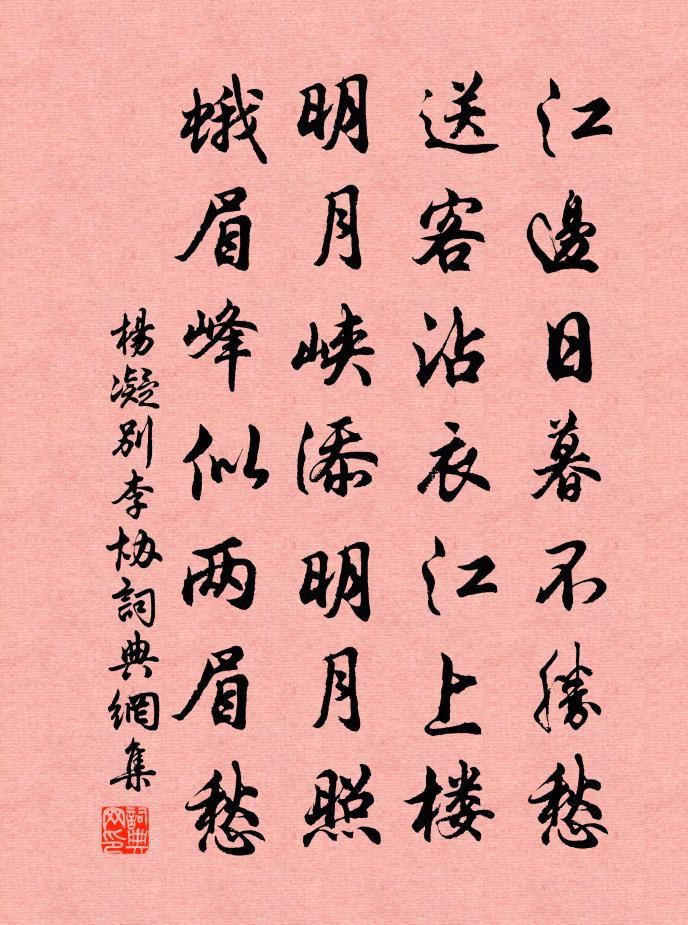 江邊日暮不勝愁
送客沾衣江上楼
明月峡添明月照
蛾眉峰似两眉愁
楊凝别李协詞典網集
詞典网印